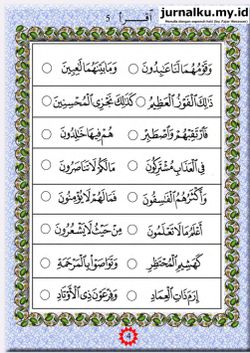 jurnalku.my.id
اقرأ 5
وَقَوْمُهُمَا لَنَا عَٰبِدُونَ ○ وَمَا بَيْنَهُمَا لَٰعِبِينَ ○
ذَٰلِكَ الْفَوْزُ الْعَظِيمُ ○ كَذَٰلِكَ نَجْزِى الْمُحْسِنِينَ ○
فَارْتَقِبْهُمْ وَاصْطَبِرْ ○ هُمْ فِيهَا خَٰلِدُونَ ○
فِى الْعَذَابِ مُشْتَرِكُونَ ○ مَالَكُمْ لَا تَنَاصَرُونَ ○
وَأَكْثَرُهُمُ الْفَٰسِقُونَ ○ فَمَا لَهُمْ لَا يُؤْمِنُونَ ○
أَعْلَمُ مَا لَا تَعْلَمُونَ ○ مِنْ حَيْثُ لَا يَشْعُرُونَ ○
كَهَشِيمِ الْمُحْتَظِرِ ○ وَتَوَاصَوْا بِالْمَرْحَمَةِ ○
إِرَمَ ذَاتِ الْعِمَادِ ○ وَفِرْعَوْنَ ذِى الْأَوْتَادِ ○
4